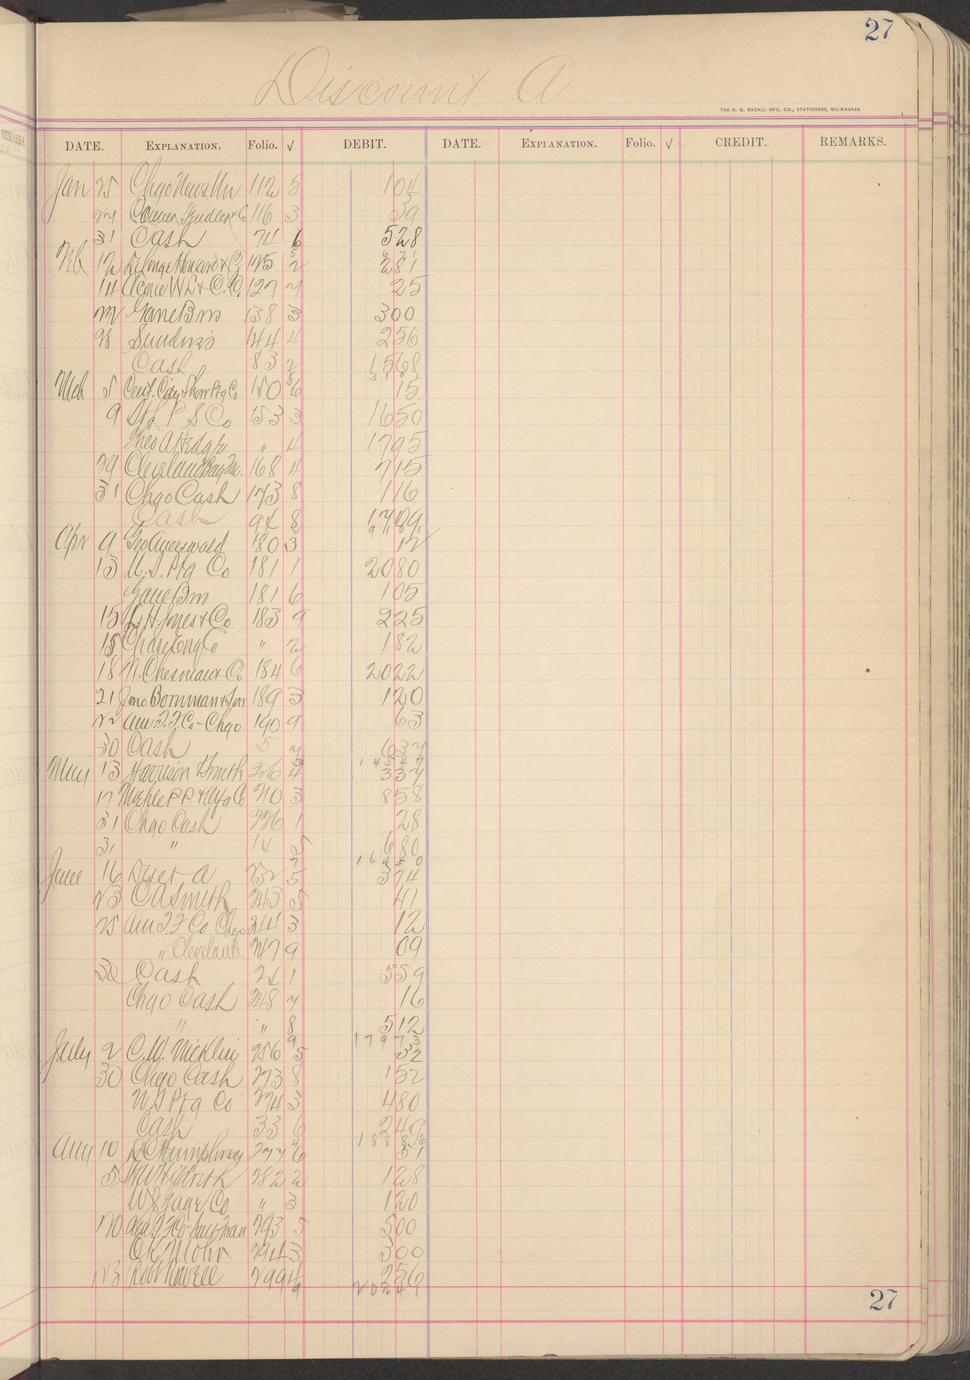 27
Discount A
THE H. G. RAZALL MFG. CO., STATIONERS, MILWAUKEE.
DATE. EXPLANATION. Folio. √ DEBIT. DATE. EXPLANATION. Folio. √ CREDIT. REMARKS.
Jan 25 Chgo 112 5 104
116 3 39
31 Cash 74 6 528
Feb 12 125 2 281
14 Acme 127 25
Gane Bros 138 3 300
28 144 4 256
Cash 83 2 1568
Mch 5 Show Ptg Co 150 6 15
9 P S Co 153 3 1650
" 4 1795
29 Cleveland 168 4 715
31 Chgo Cash 173 8 116
Cash 94 8
Apr 9 Geo Auerswald 180 3 12
13 U.S. Ptg Co 181 1 2080
Gane Bros 181 6 105
15 Jones & Co 183 9 225
15 " 2 182
18 & Co. 184 6 2022
21 Bornman & Son 189 3 120
22 Am T.F. Co - Chgo 190 9 63
30 Cash 5 637
May 13 Harrison & Smith 206 4 337
17 Miehle P P & Mfg Co 210 3 858
31 Chgo Cash 226 1 28
31 " 14 5 680
1 6 4 5 0
June 16 Disct A 232 5 374
23 O A Smith 243 5 41
25 Am T F Co Chgo 244 3 12
" Cleveland 247 9 09
30 Cash 24 1 559
Chgo Cash 248 16
" " 8 512
1 7 9 7 3
July 2 C.W. Micklin 256 5 32
30 Chgo Cash 273 8 152
U S Ptg Co 274 3 480
Cash 33 6 246
Aug 10 Humphrey 277 6 51
5 Hildreth 282 2 128
W S Gage Co " 3 120
20 293 5 500
O K Mohr 294 3 300
23 299 4 256
27